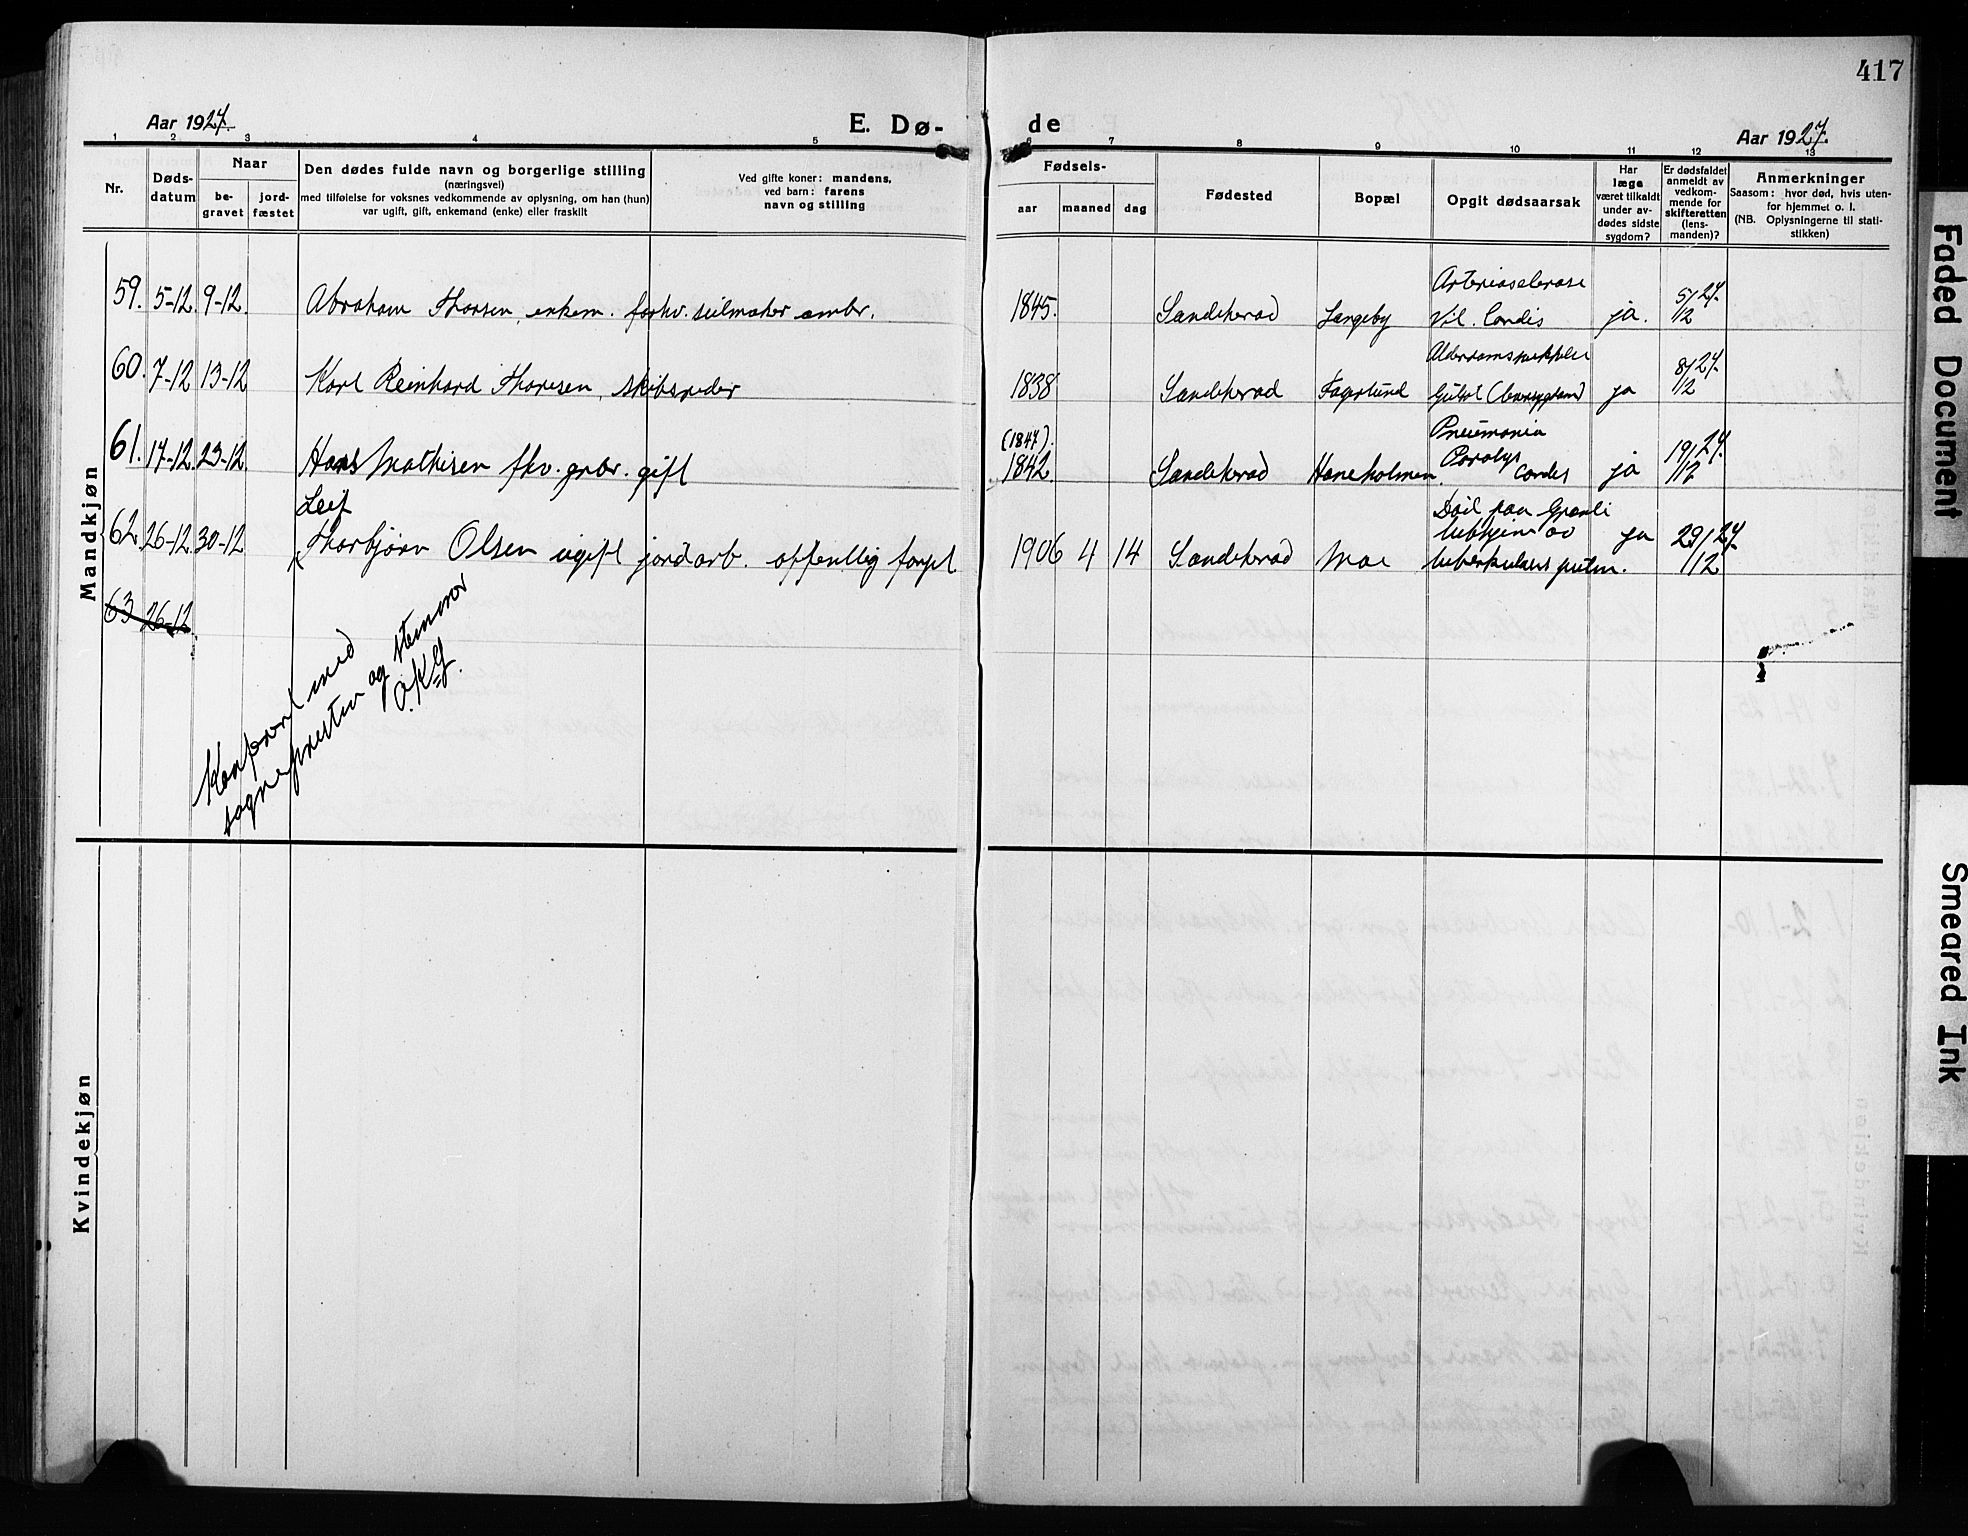 417
Aar 1927.
E. Dø-
de
Aar 1927.
1 2 3 4 5 6 7 8 9 10 11 12 13
Nr.
Døds-
datum
Naar
be-
gravet
jord-
fæstet
Den dødes fulde navn og borgerlige stilling
(næringsvei)
med tilføielse for voksnes vedkommende av oplysning, om han (hun)
var ugift, gift, enkemand (enke) eller fraskilt
Ved gifte koner: mandens,
ved barn: farens
navn og stilling
Fødsels-
aar maaned dag
Fødested
Bopæl
Opgit dødsaarsak
Har
læge
været tilkaldt
under av-
dødes sidste
sygdom?
Er dødsfaldet
anmeldt av
vedkom-
mende for
skifteretten
(lens-
manden)?
Anmerkninger
Saasom: hvor død, hvis uten-
for hjemmet o. l.
(NB. Oplysningerne til stati-
stikken)
Mandkjøn
59. 5-12 9-12 Abraham Thorsen, enkem. forhv. seilmaker 1845. Sandeherad Langeby Arteriosclerose
Vit. Cordis ja. 5/12 27.
60. 7-12 13-12 Karl Reinhard Thoresen, skibsreder 1838 Sandeherad Fagerlund
ja 8/12 27.
61. 17-12 23-12 Hans Mathisen fhv. grbr. gift (1847).
1842. Sandeherad Haneholmen. Pneumonia
Paralys
Cordis ja 19/12 27.
Leif
62. 26-12 30-12 Thorbjørn Olsen ugift jordarb. offentlig forpl 1906 4 14 Sandeherad Moe Död paa Granli
av
ja 29/12 27.
63 26-12
Konferert med
sogneprestens og stemmer
O.K.G.
Kvindekjøn
Faded Document
Smeared Ink